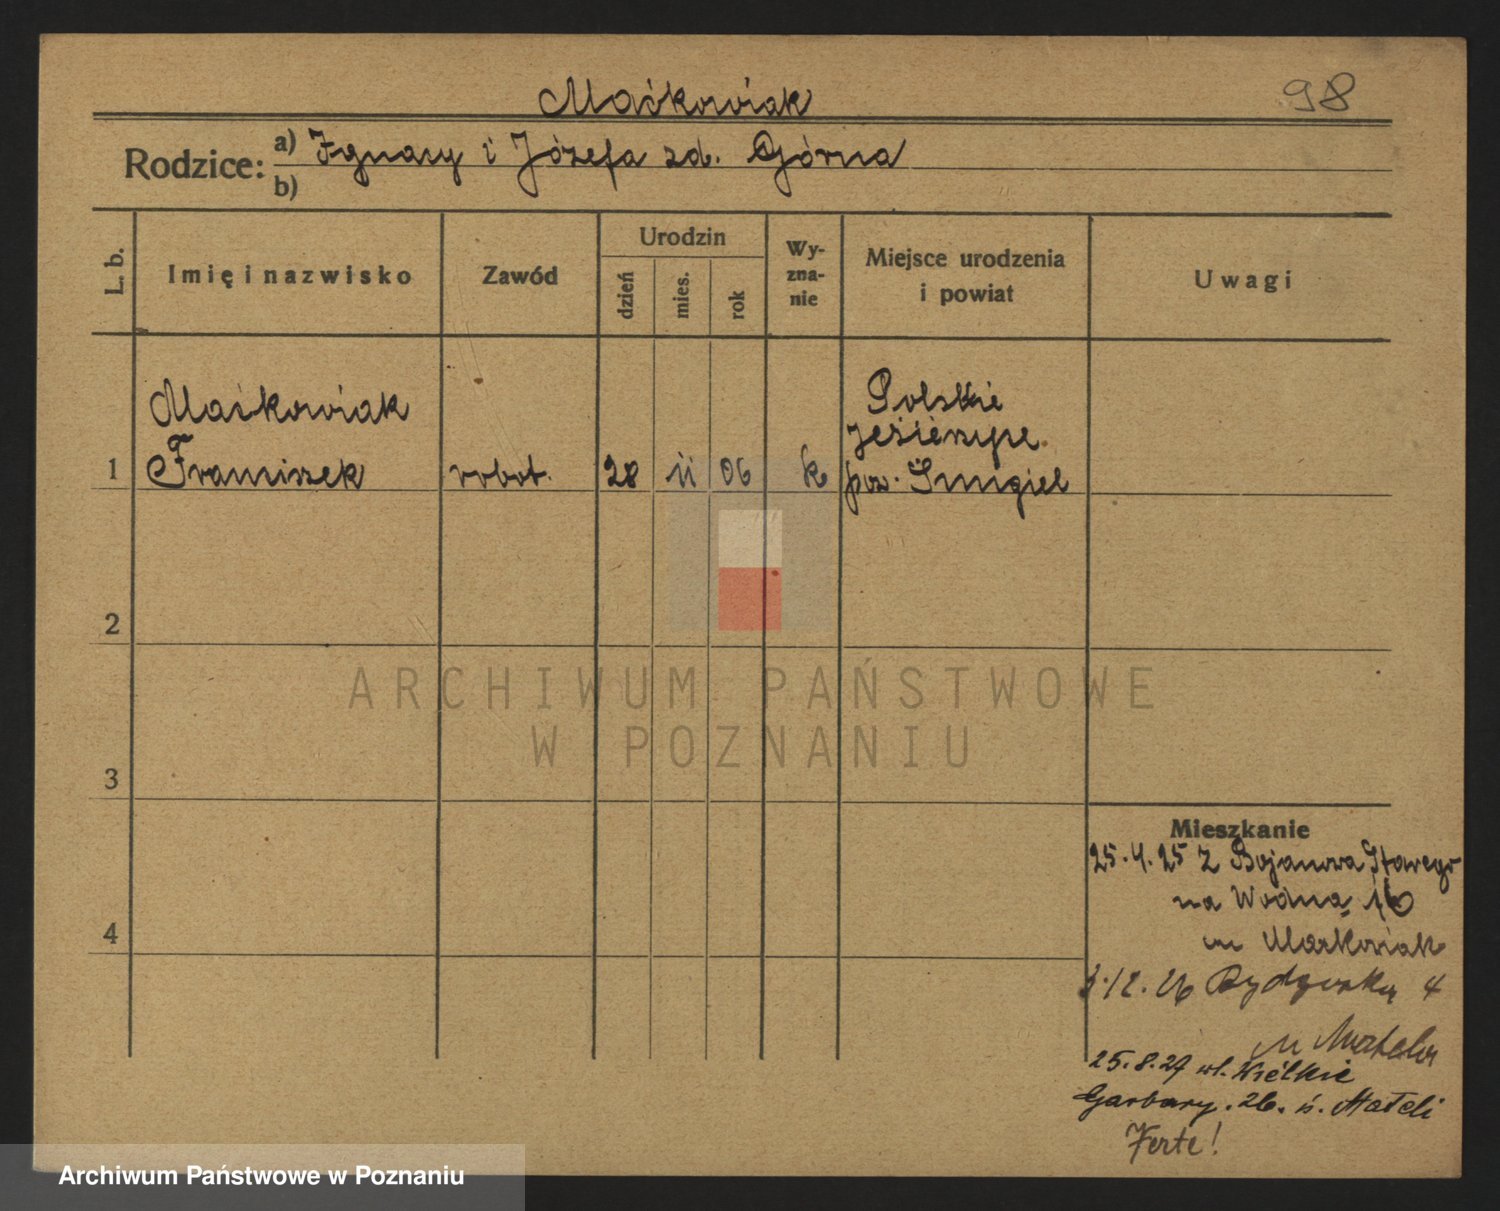 Maćkowiak
98
Rodzice: a) Ignacy i Józefa zd. Górna
b)
L. b.
Imię i nazwisko
Zawód
Urodzin
dzień
mies.
rok
Wy-
zna-
nie
Miejsce urodzenia
i powiat
Uwagi
Maćkowiak
Polskie
1 Franciszek robot. 28 11 06 k
pow. Śmigiel
2
3
4
Mieszkanie
25.4.25 z Bojanowa Starego
na Wodną 16
u Maćkowiak
12.26 4
u
25.8.29 ul. Wielkie
Garbary. 26. u. Mateli
Verte!
ARCHIWUM PAŃSTWOWE
W POZNANIU
Archiwum Państwowe w Poznaniu